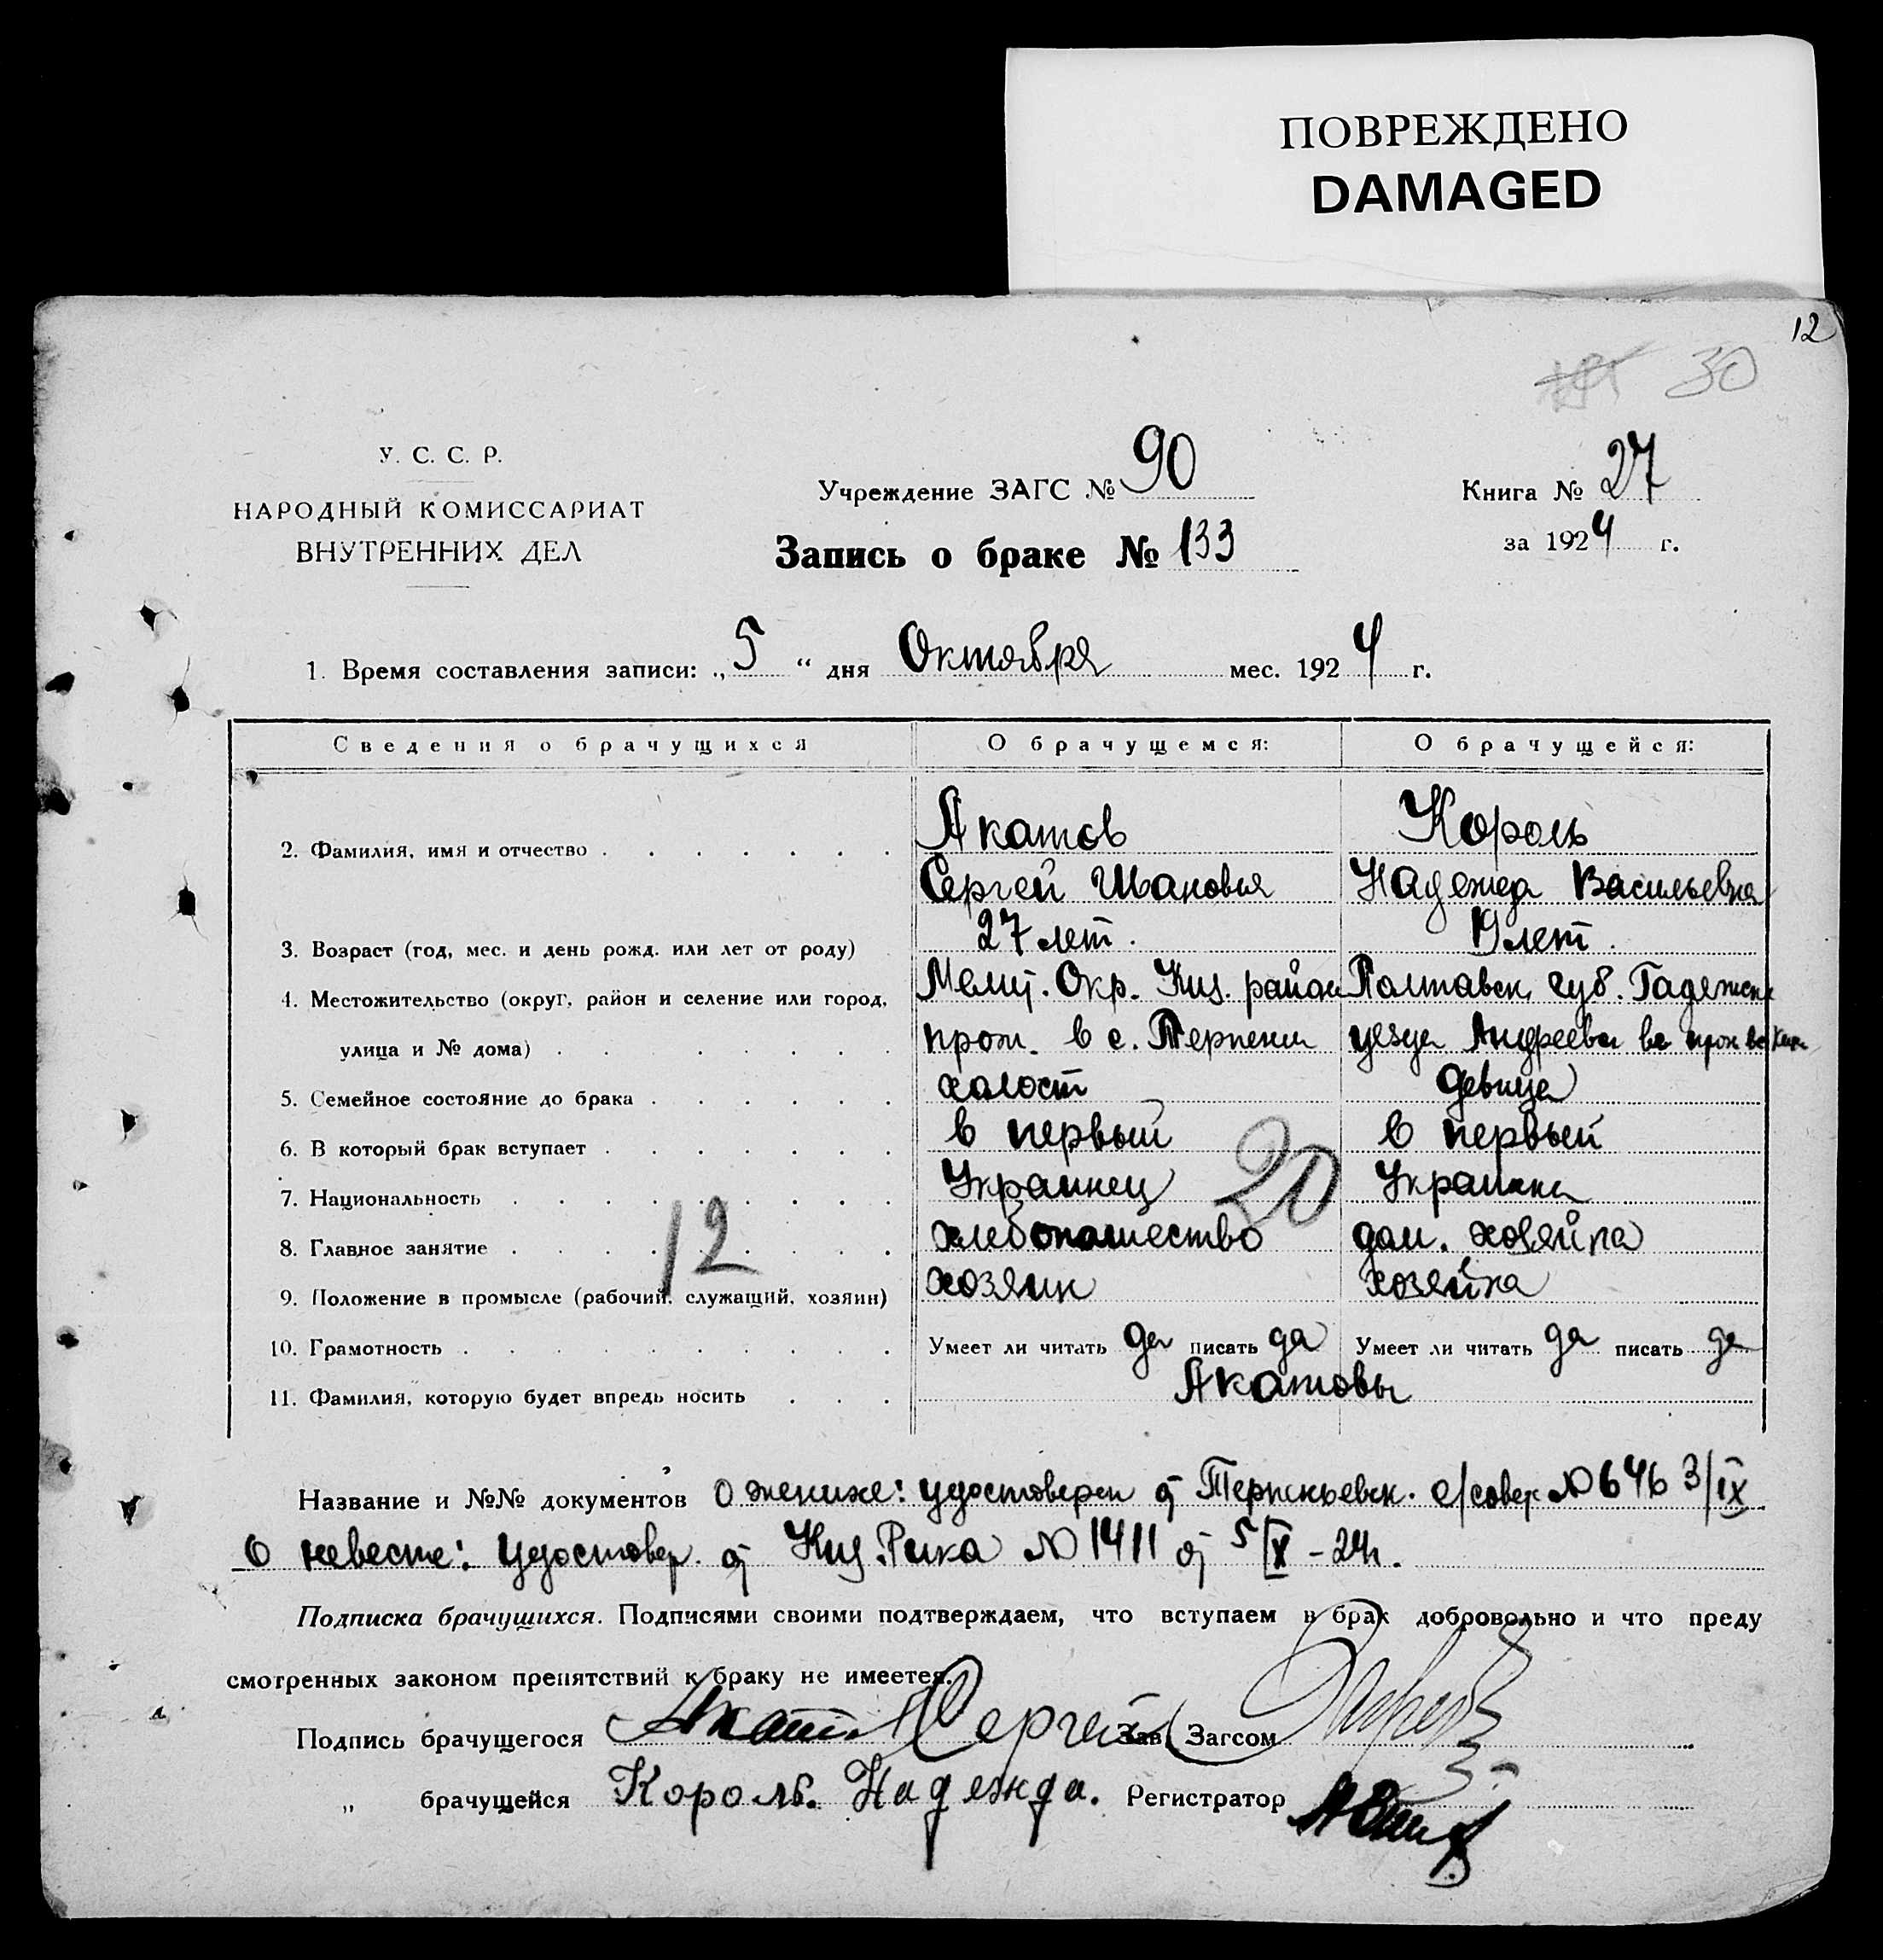 ПОВРЕЖДЕНО
DAMAGED
12
30
У. С. С. Р.
НАРОДНЫЙ КОМИССАРИАТ
ВНУТРЕННИХ ДЕЛ
Учреждение ЗАГС № 90
Запись о браке № 133
Книга № 27
за 1924 г.
1. Время составления записи: „5“ дня Октября мес. 1924 г.
Сведения о брачущихся О брачущемся: О брачущейся:
2. Фамилия, имя и отчество Акатов Король
Сергей Иванович Надежда Васильевна
3. Возраст (год, мес. и день рожд. или лет от роду) 27 лет. 19 лет.
4. Местожительство (округ, район и селение или город, Мелит. Окр. Киз. район Полтавск. губ. Гадежск
улица и № дома) прож. в с. Терпении уезда Андреевка
5. Семейное состояние до брака холост девица
6. В который брак вступает в первый в первый
7. Национальность Украинец Украинка
20
8. Главное занятие хлебопашество дом. хозяйка
12
9. Положение в промысле (рабочий, служащий, хозяин) хозяин хозяйка
10. Грамотность Умеет ли читать да писать да Умеет ли читать да писать да
11. Фамилия, которую будет впредь носить Акатовы
Название и №№ документов О женихе: удостоверен от Терпеньевск. с/совер №646 3/IX
О невесте: Удостовер. от Киз. Рика №1411 от 5/X-24г.
Подписка брачущихся. Подписями своими подтверждаем, что вступаем в брак добровольно и что преду
смотренных законом препятствий к браку не имеется.
Подпись брачущегося Акатов Сергей Зав. Загсом
„ брачущейся Король. Надежда. Регистратор